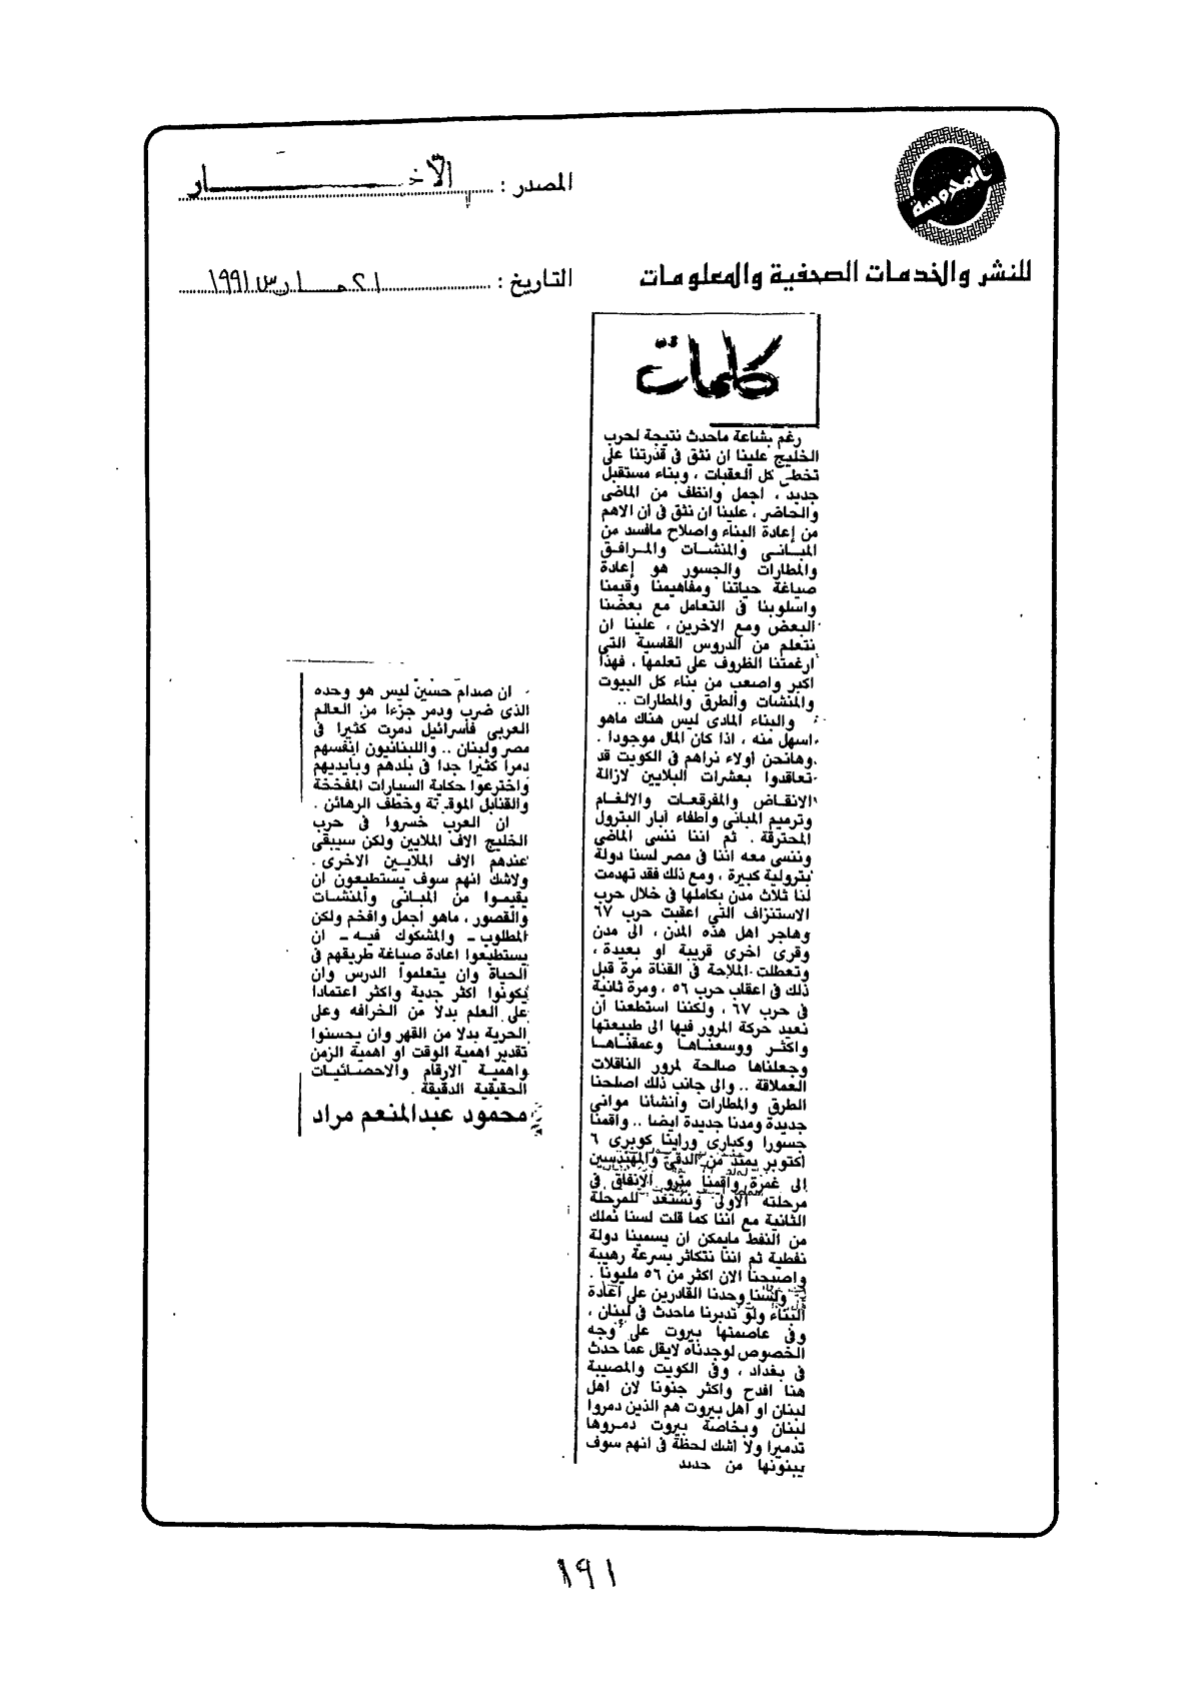 المحروسة
للنشر والخدمات الصحفية والمعلومات
المصدر : الأخبار
التاريخ : ٢١ مارس ١٩٩١
كلمات
رغم بشاعة ماحدث نتيجة لحرب
الخليج علينا ان نثق فى قدرتنا على
تخطى كل العقبات ، وبناء مستقبل
جديد ، اجمل وانظف من الماضى
والحاضر ، علينا ان نثق فى ان الاهم
من إعادة البناء واصلاح مافسد من
المبانى والمنشات والمرافق
والمطارات والجسور هو إعادة
صياغة حياتنا ومفاهيمنا وقيمنا
واسلوبنا فى التعامل مع بعضنا
البعض ومع الاخرين ، علينا ان
نتعلم من الدروس القاسية التى
ارغمتنا الظروف على تعلمها ، فهذا
اكبر واصعب من بناء كل البيوت
والمنشات والطرق والمطارات ..
والبناء المادى ليس هناك ماهو
اسهل منه ، اذا كان المال موجودا .
وهانحن أولاء نراهم فى الكويت قد
تعاقدوا بعشرات البلايين لازالة
الانقاض والمفرقعات والالغام
وترميم المبانى واطفاء آبار البترول
المحترقة . ثم اننا ننسى الماضى
وننسى معه اننا فى مصر لسنا دولة
بترولية كبيرة ، ومع ذلك فقد تهدمت
لنا ثلاث مدن بكاملها فى خلال حرب
الاستنزاف التى اعقبت حرب ٦٧
وهاجر اهل هذه المدن ، الى مدن
وقرى اخرى قريبة او بعيدة ،
وتعطلت الملاحة فى القناة مرة قبل
ذلك فى اعقاب حرب ٥٦ ، ومرة ثانية
فى حرب ٦٧ ، ولكننا استطعنا ان
نعيد حركة المرور فيها الى طبيعتها
واكثر ووسعناها وعمقناها
وجعلناها صالحة لمرور الناقلات
العملاقة .. والى جانب ذلك اصلحنا
الطرق والمطارات وانشأنا موانى
جديدة ومدنا جديدة ايضا .. واقمنا
جسورا وكبارى وراينا كوبرى ٦
اكتوبر يمتد من الدقى والمهندسين
إلى غمرة واقمنا مترو الانفاق فى
مرحلته الاولى ونستعد للمرحلة
الثانية مع اننا كما قلت لسنا نملك
من النفط مايمكن ان يسمينا دولة
نفطية ثم اننا نتكاثر بسرعة رهيبة
واصبحنا الان اكثر من ٥٦ مليونا .
ولسنا وحدنا القادرين على اعادة
البناء ولو تدبرنا ماحدث فى لبنان ،
وفى عاصمتها بيروت على وجه
الخصوص لوجدناه لايقل عما حدث
فى بغداد ، وفى الكويت والمصيبة
هنا افدح واكثر جنونا لان اهل
لبنان او اهل بيروت هم الذين دمروا
لبنان وبخاصة بيروت دمروها
تدميرا ولا اشك لحظة فى انهم سوف
يبنونها من جديد
ان صدام حسين ليس هو وحده
الذى ضرب ودمر جزءا من العالم
العربى فأسرائيل دمرت كثيرا فى
مصر ولبنان .. واللبنانيون انفسهم
دمرا كثيرا جدا فى بلدهم وبأيديهم
واخترعوا حكاية السيارات المفخخة
والقنابل الموقوتة وخطف الرهائن .
ان العرب خسروا فى حرب
الخليج الاف الملايين ولكن سيبقى
عندهم الاف الملايين الاخرى .
ولاشك انهم سوف يستطيعون ان
يقيموا من المبانى والمنشات
والقصور ، ماهو اجمل وافخم ولكن
المطلوب - والمشكوك فيه - ان
يستطيعوا اعادة صياغة طريقهم فى
الحياة وان يتعلموا الدرس وان
يكونوا اكثر جدية واكثر اعتمادا
على العلم بدلا من الخرافه وعلى
الحرية بدلا من القهر وان يحسنوا
تقدير اهمية الوقت او اهمية الزمن
واهمية الارقام والاحصائيات
الحقيقية الدقيقة .
محمود عبدالمنعم مراد
١٩١